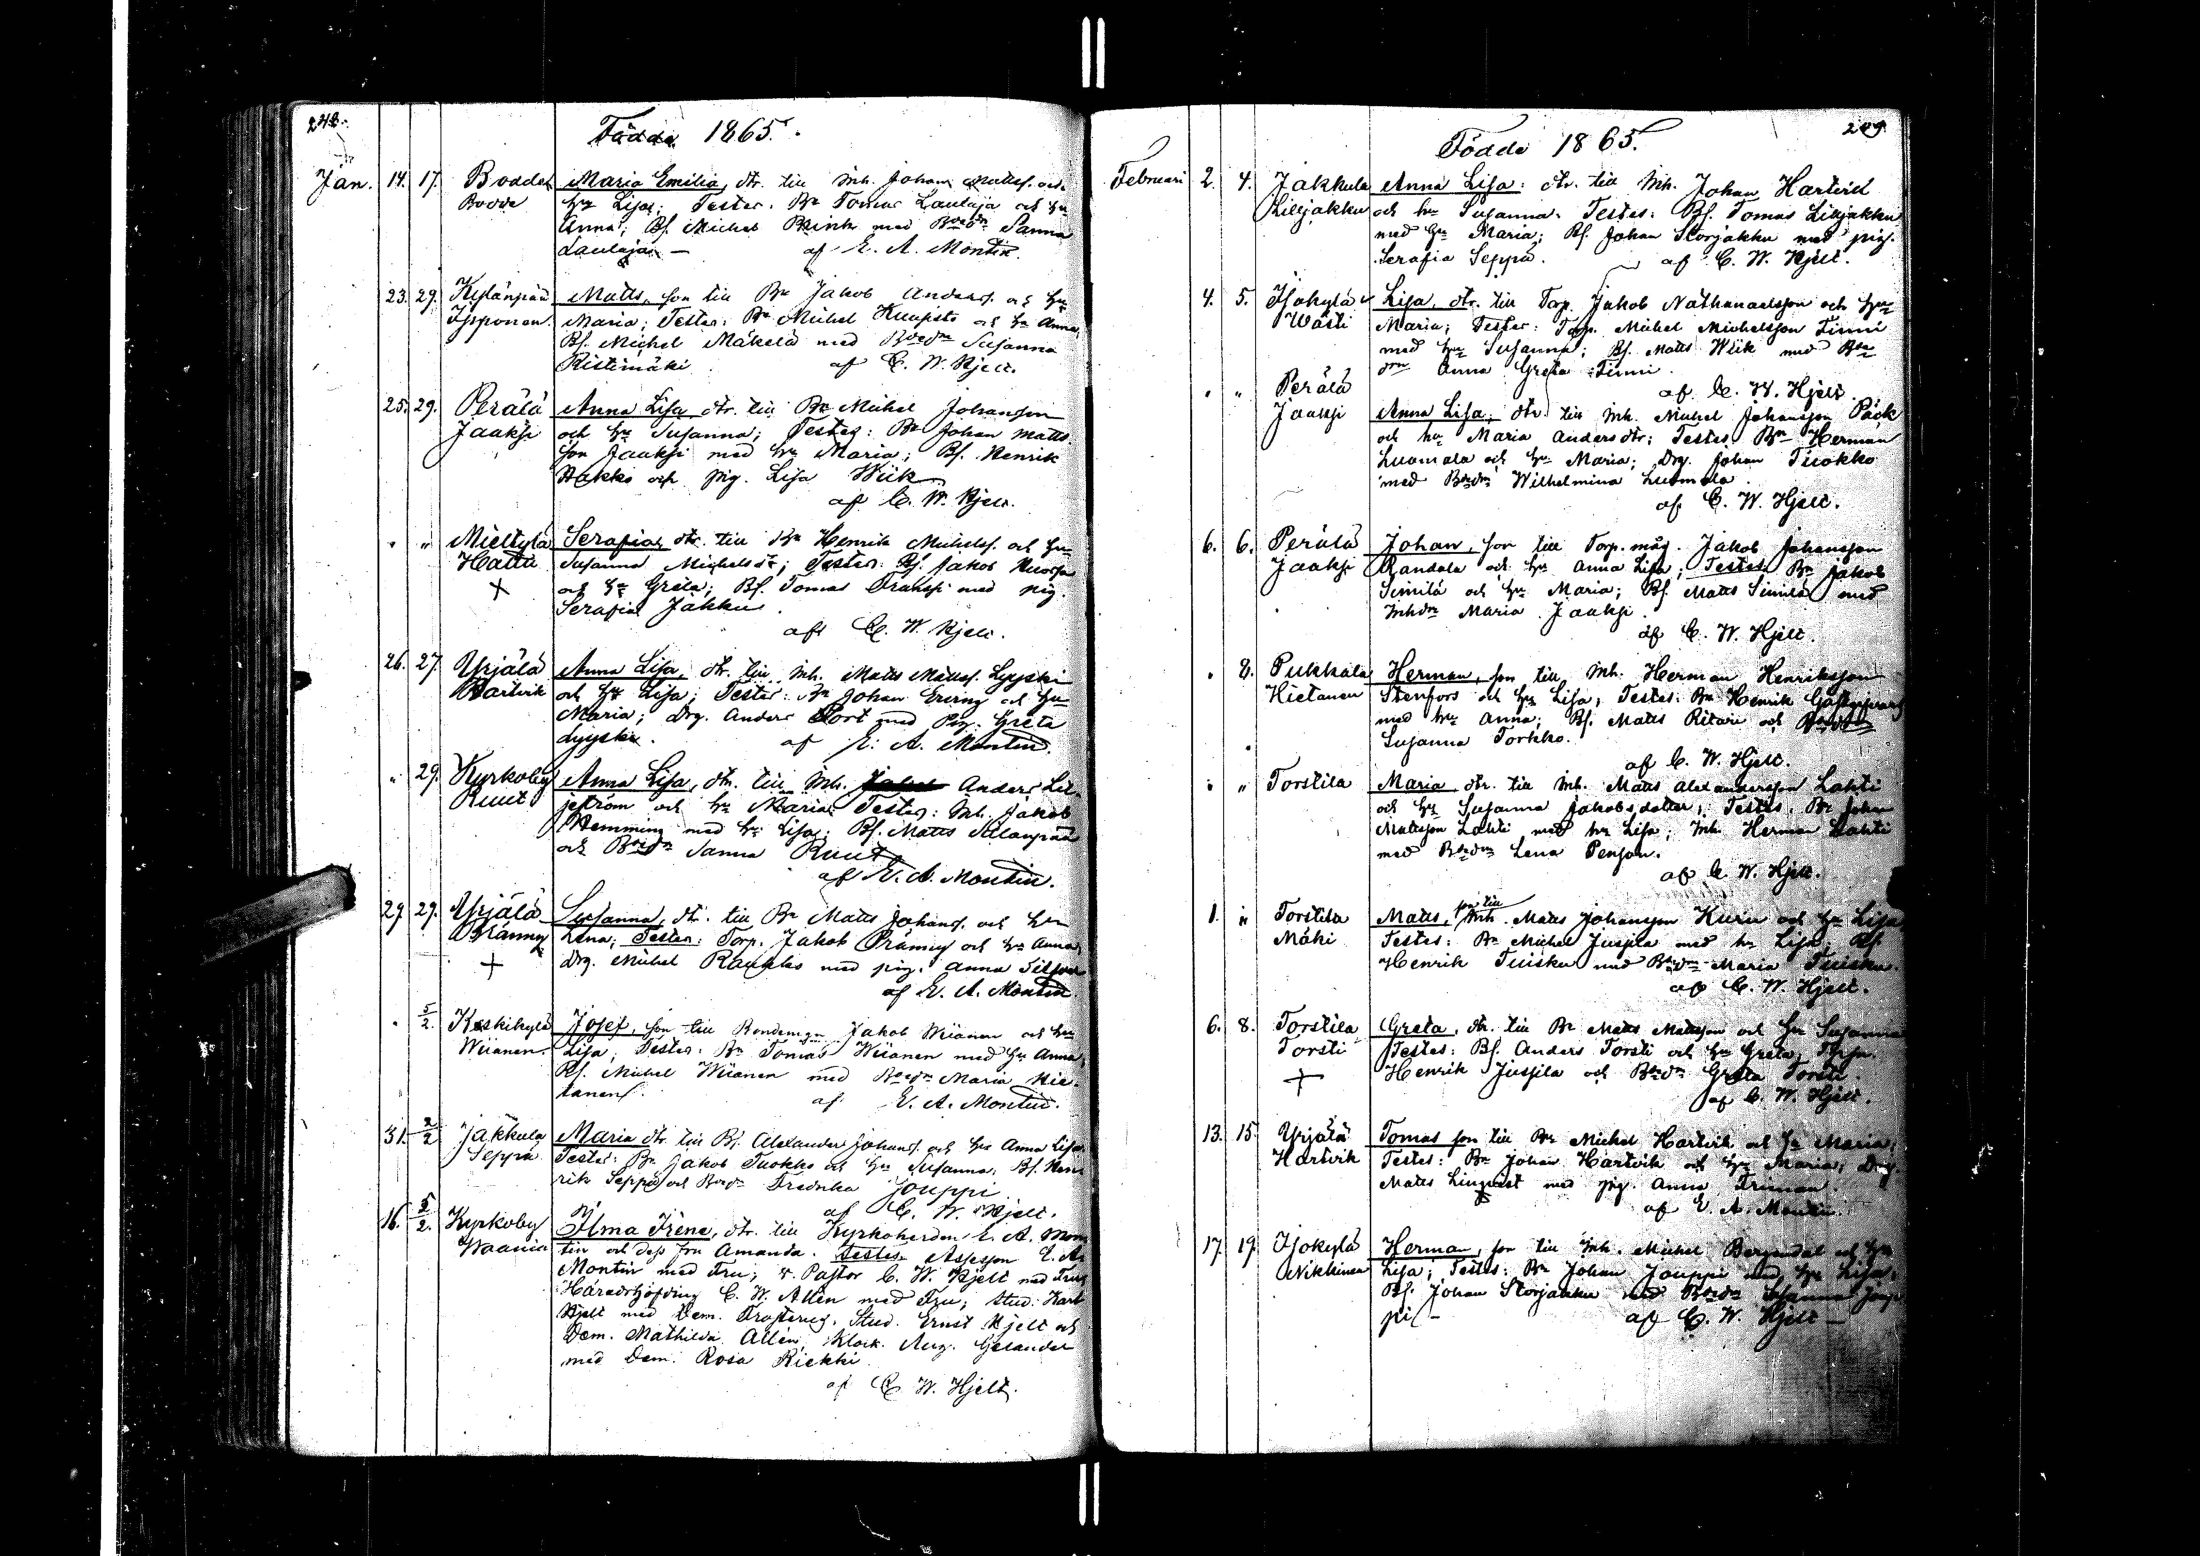 248.
Födde 1865.
Jan. 14. 17. Bodde Maria Emilia, dtr. till Inh. Johan Mattss. och
Bodde hu Lisa; Testes: Bn Tomas Laulaja och hu
Anna; Bs. Michel Brink med Bdedr Sanna
Laulaja — af E. A. Montin.
23. 29. Kylänpää Matts, son till Bn Jakob Anderss. och hu
Ipponen. Maria; Testes: Bn Michel Knaapsto och hu Anna,
Bs. Michel Mäkelä med Bdedr Susanna
Ristimäki af C. W. Hjelt.
25. 29. Perälä Anna Lisa dtr. till Bn Michel Johansson
Jaaksi och hu Susanna; Testes: Bn Johan Matts
son Jaaksi med hu Maria; Bs. Henrik
Hakko och pig. Lisa Wiik
af C. W. Hjelt.
" " Mieltylä Serafia, dtr. till Bn Henrik Michelss. och hu
Hattu Susanna Michelsdr; Testes: Bs. Jakob
+ och hu Greta; Bs. Tomas Fransi med pig.
Serafia Jakku.
af C. W. Hjelt.
26. 27. Yrjälä Anna Lisa, dtr. till Inh. Matts Mattss. Lyyski
Hartvik och hu Lisa; Testes: Bn Johan Ering och hu
Maria; drg. Anders Tort med pig. Greta
Lyyski. af E. A. Montin.
" 29. Kyrkoby Anna Lisa, dtr. till Inh. Anders Lil-
Ruut jeström och hu Maria; Testes: Inh. Jakob
Hemming med hu Lisa; Bs. Matts
och Bdedr Sanna Ruut
af E. A. Montin.
29. 29. Yrjälä Susanna, dtr. till Bn Matts Johanss. och hu
Pränny Lena; Testes: Torp. Jakob Pränny och hu Anna,
+ drg. Michel Raukko med pig. Anna
af E. A. Montin.
" 5/2. Keskikylä Josef, son till Bondemgn Jakob Wiianen och hu
Wiianen. Lisa; Testes: Bn Tomas Wiianen med hu Anna;
Bs. Michel Wiianen med Bdedr Maria Hie-
tanen. af E. A. Montin.
31. 2/2 Jakkula Maria dtr. till Bs. Alexander Johanss. och hu Anna Lisa.
Seppä Testes: Bn Jakob Tuokko och hu Susanna; Bs. Hen
rik Seppä och Bdedr Fredrika Jouppi
af C. W. Hjelt.
16. 5/2. Kyrkoby Ilma Irene, dtr. till Kyrkoherden E. A. Mon
Waania tin och dess fru Amanda. Testes Assessor E. A.
Montin med Fru; v. Pastor C. W. Hjelt med Fru;
Häradshöfding C. W. Allén med Fru; Stud. Karl
Hjelt med Dem. Stud. Ernst Hjelt och
Dem. Mathilda Allén; Klock. Aug. Gelander
med Dem. Rosa Riekki.
af C. W. Hjelt.
249.
Födde 1865.
Februari 2. 4. Jakkula Anna Lisa: dtr. till Inh. Johan Hartvik
Lilljakku och hu Susanna. Testes: Bs. Tomas Lilljakku
med hu Maria; Bs. Johan Storjakku med pig.
Serafia Seppä. af C. W. Hjelt.
4. 5. Ijokylä Lisa, dtr. till Torp. Jakob Nathanaelsson och hu
Wästi Maria; Testes: Torp. Michel Michelsson Finni
med hu Susanna; Bs. Matts Wiik med Bde
dr Anna Greta Finni.
af C. W. Hjelt.
" " Perälä Jaaksi Anna Lisa, dtr. till Inh. Michel Johansson Pack
och hu Maria Andersdtr; Testes Bn Herman
Luomala och hu Maria; Drg. Johan Tuokko
med Bdedr Wilhelmina Luomala.
af C. W. Hjelt.
6. 6. Perälä Johan, son till Torp. måg. Jakob Johansson
Jaaksi Randala och hu Anna Lisa; Testes Bn Jakob
Similä och hu Maria; Bs. Matts Similä med
Inhdr Maria Jaaksi.
af C. W. Hjelt.
" 8. Pukkala Herman, son till Inh. Herman Henriksson
Hietanen Stenfors och hu Lisa; Testes: Bn Henrik
med hu Anna; Bs. Matts Ritari och Bdedr
Susanna Torkko.
af C. W. Hjelt.
" " Torstila Maria, dtr. till Inh. Matts Alexandersson Lahti
och hu Susanna Jakobsdotter; Testes: Bn Johan
Mattsson Lahti med hu Lisa; Inh. Herman Lahti
med Bdedr Lena Penson.
af C. W. Hjelt.
1. " Torstila Matts, son till Inh. Matts Johansson Kuru och hu Lisa
Mäki Testes: Bn Michel Jussila med hu Lisa; Bs.
Henrik Tuisku med Bdedr Maria Tuisku.
af C. W. Hjelt.
6. 8. Torstila Greta, dtr. till Bn Matts Mattsson och hu Susanna
Torsti Testes: Bs. Anders Torsti och hu Greta;
+ Henrik Jussila och Bdedr Greta Torsti.
af C. W. Hjelt.
13. 15. Yrjälä Tomas son till Bn Michel Hartvik och hu Maria;
Hartvik Testes: Bn Johan Hartvik och hu Maria; Drg.
Matts Linqvist med pig. Anna Friman.
af E. A. Montin.
17. 19. Ijokylä Herman, son till Inh. Michel Bergendal och hu
Nikkinen Lisa; Testes: Bn Johan Jouppi med hu Lisa;
Bs. Johan Storjakku med Bdedr Susanna Joup
pi — af C. W. Hjelt —